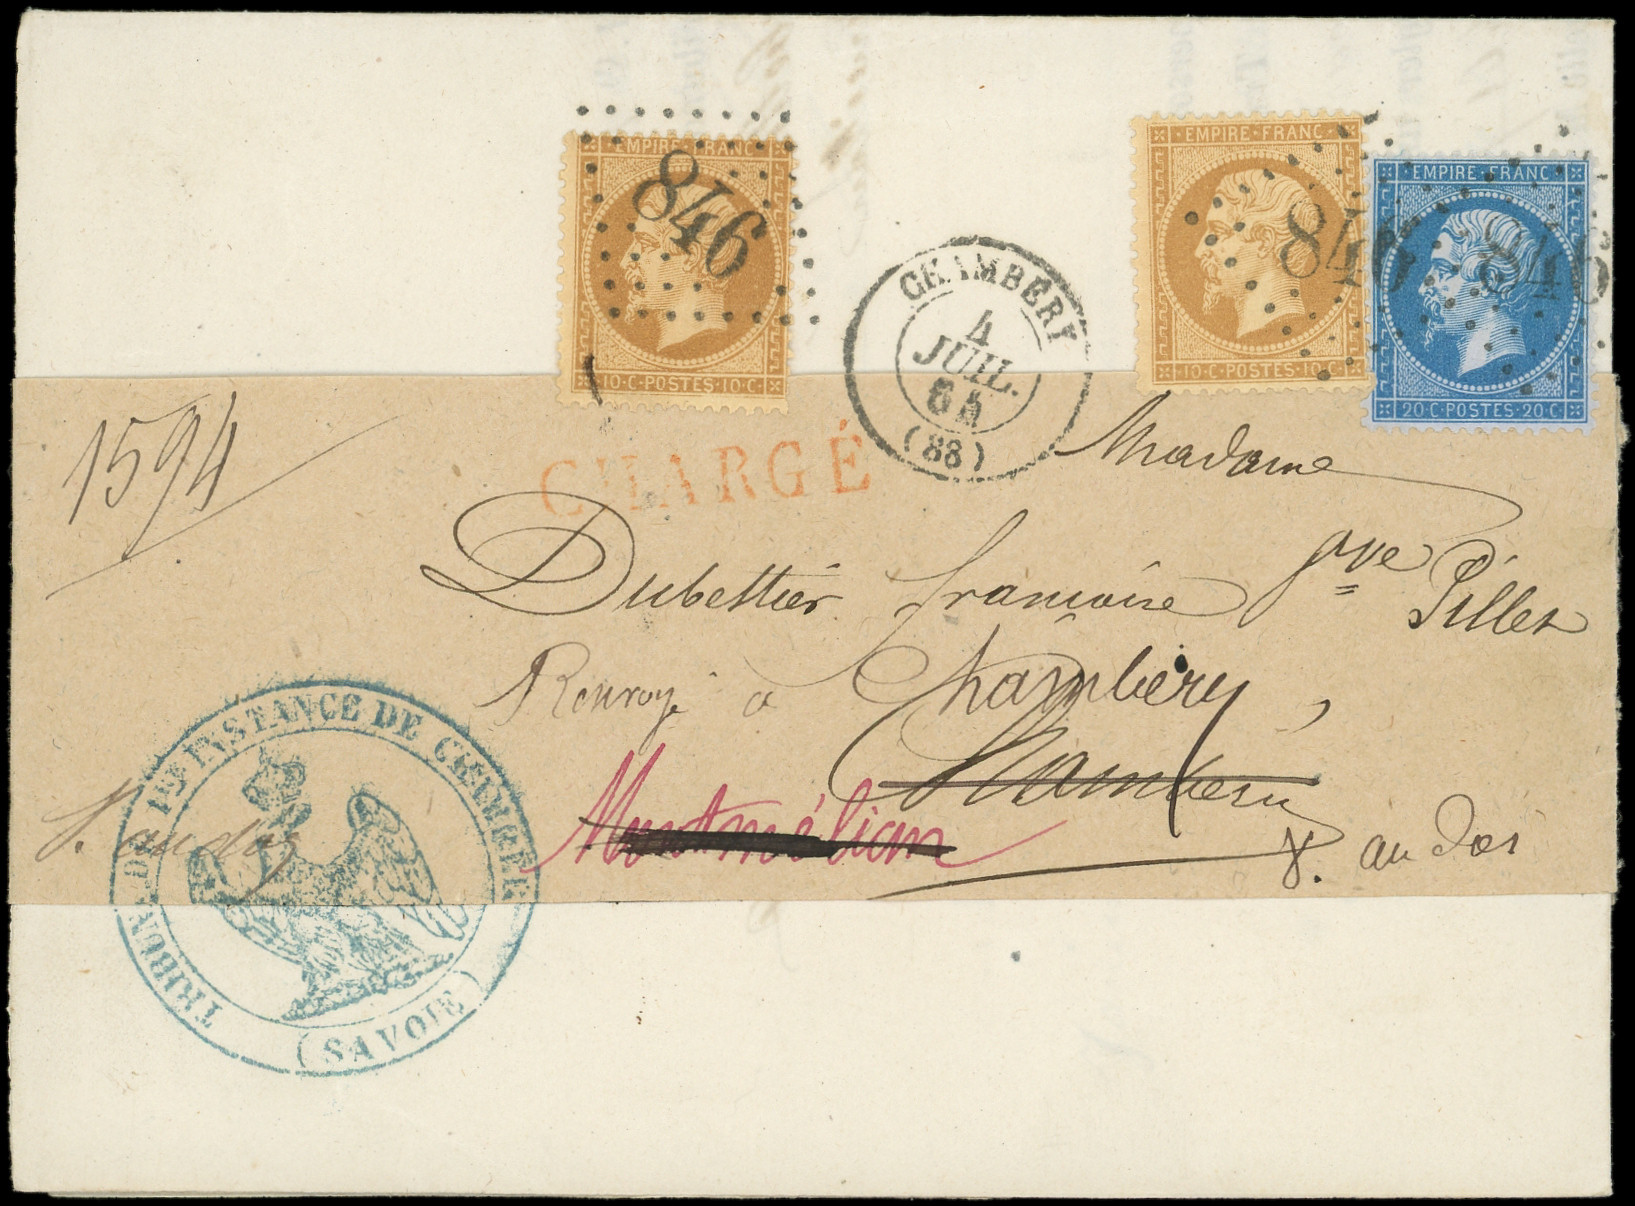 EMPIRE·FRANC
846
10·C·POSTES·10·C
EMPIRE·FRANC
846
10·C·POSTES·10·C
EMPIRE·FRANC
846
20·C·POSTES·20·C
CHAMBERY
4
JUIL.
(88)
1594
CHARGÉ
Madame
Dubettier françoise
Renvoyé à Chambéry,
Chambery
Montmélian
V. au dos
TRIBUNAL DE 1RE INSTANCE DE CHAMBÉRY
(SAVOIE)